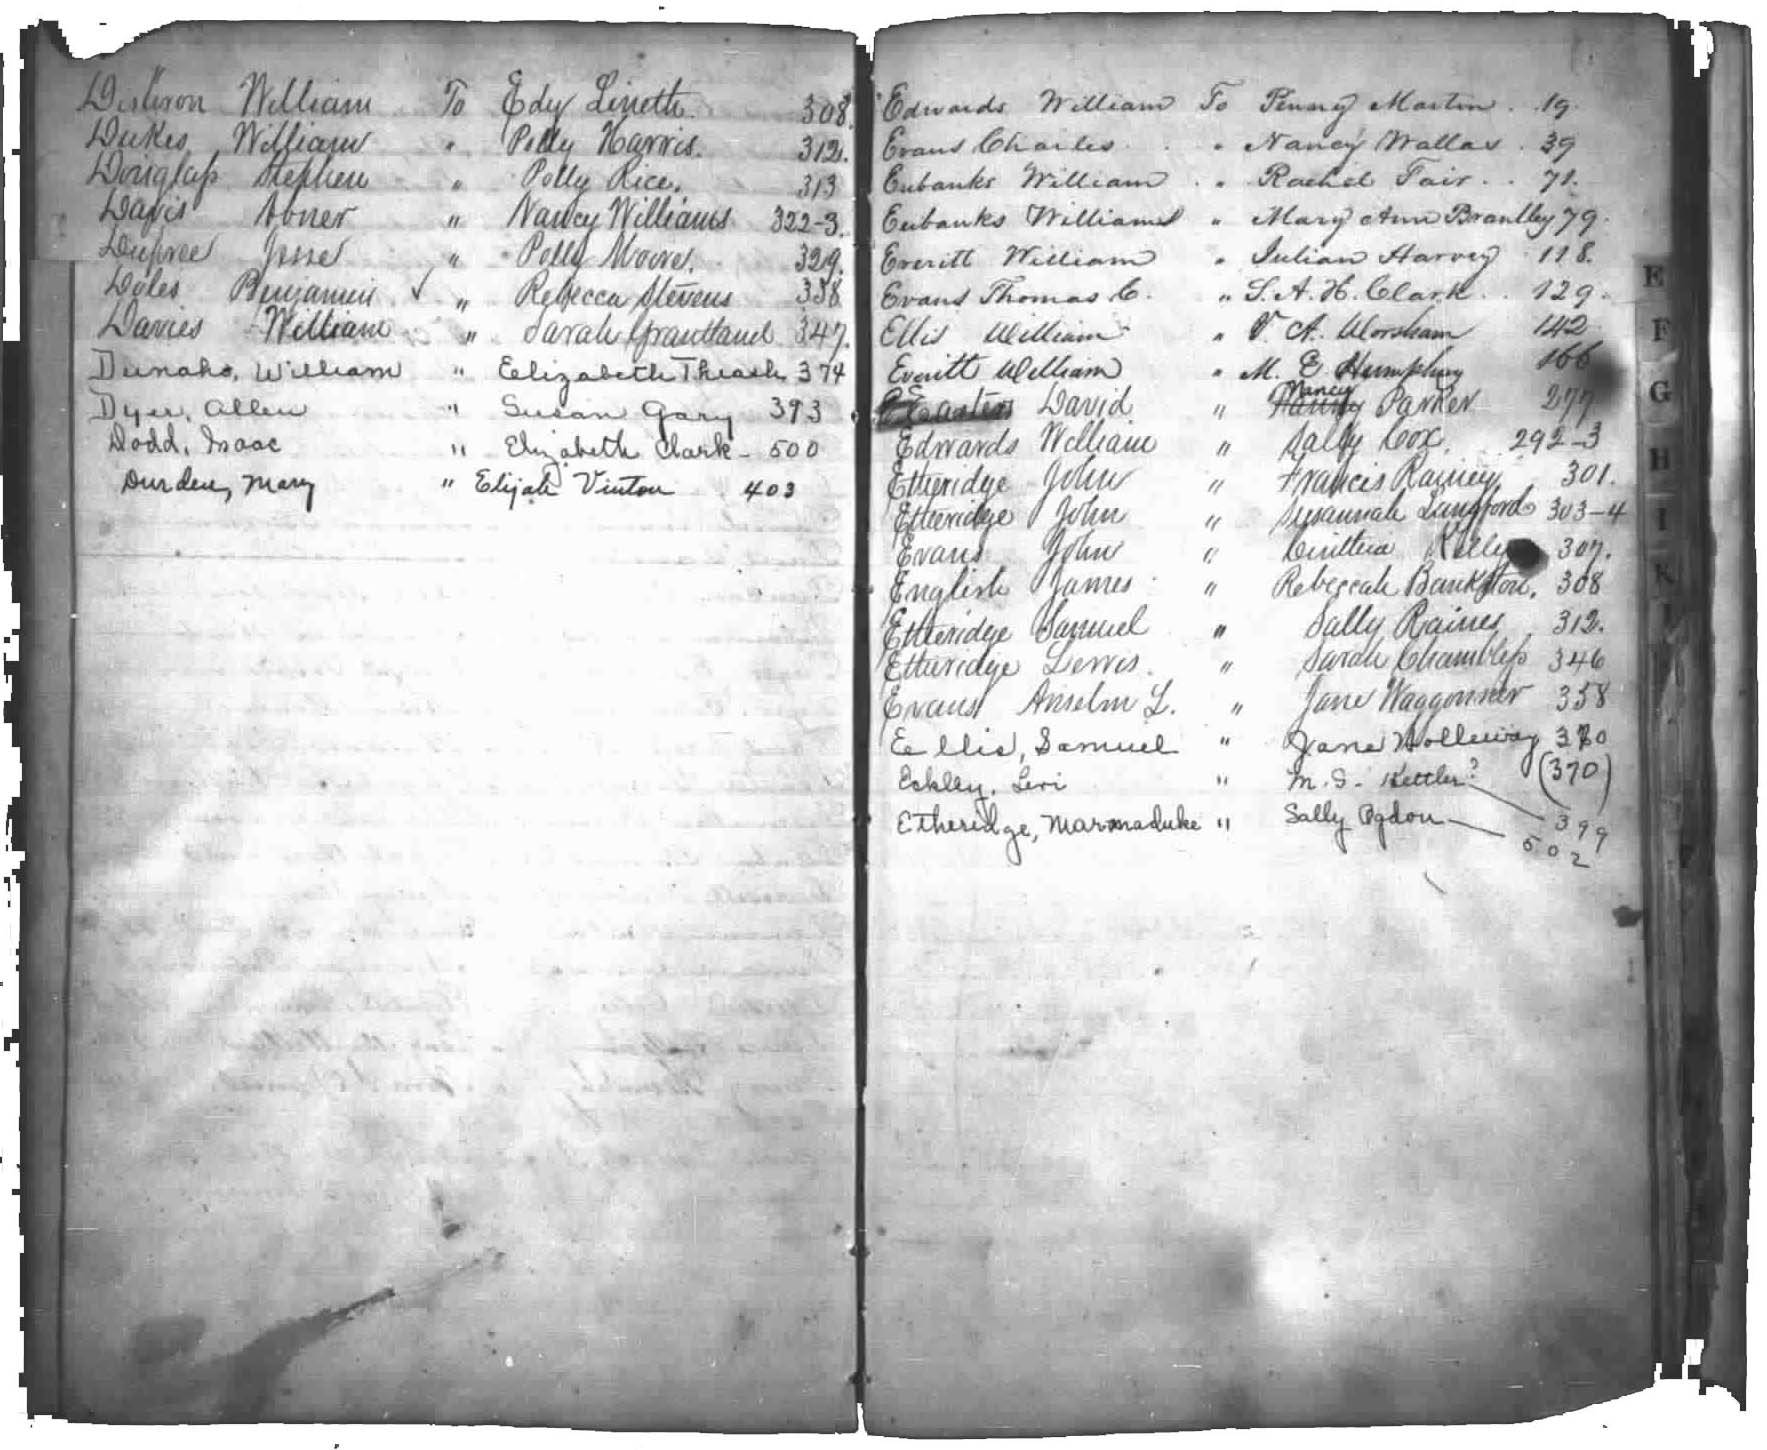 Disheron William To Edy Linetto 308.
Dukes, William " Polly Harris. 312.
Douglass Stephen " Polly Rice. 313
Davis Abner " Nancy Williams 322-3.
Dupree Jesse " Polly Moore. 329.
Doles Benjamin ✓ " Rebecca Stevens 338
Davies William " Sarah Grantland 347.
Dunaho, William " Elizabeth Thrash 374
Dyer, Allen " Susan Gary 393
Dodd, Isaac " Elizabeth Clark - 500
Durden, Mary " Elijah Vinton 403
Edwards William To Penny Martin . 19.
Evans Charles . " Nancy Wallas . 39
Eubanks William . " Rachel Fair . . 71.
Eubanks William " Mary Ann Brantley 79.
Everitt William " Julian Harvey . 118.
Evans Thomas C. " S. A. H. Clark . . 129.
Ellis William " V. A. Worsham 142
Everitt William " M. E. Humphrey 166
Easters David " Nancy Parker 277
Edwards William " Sally Cox. 292-3
Etheridge John " Francis Rainey, 301.
Etheridge John " Susannah Lungford 303-4
Evans John " Kelly 307.
English James " Rebeccah Bankston. 308
Etheridge Samuel " Sally Raines 312.
Etheridge Lewis. " Sarah Chambless 346
Evans Anselm L. " Jane Waggonner 358
Ellis, Samuel " Jane Holleway 370
(370)
Eckley, Levi " M. S. Kettler? — 399
Etheridge, Marmaduke " Sally Ogdon — 502
E
F
G
H
I
K
L